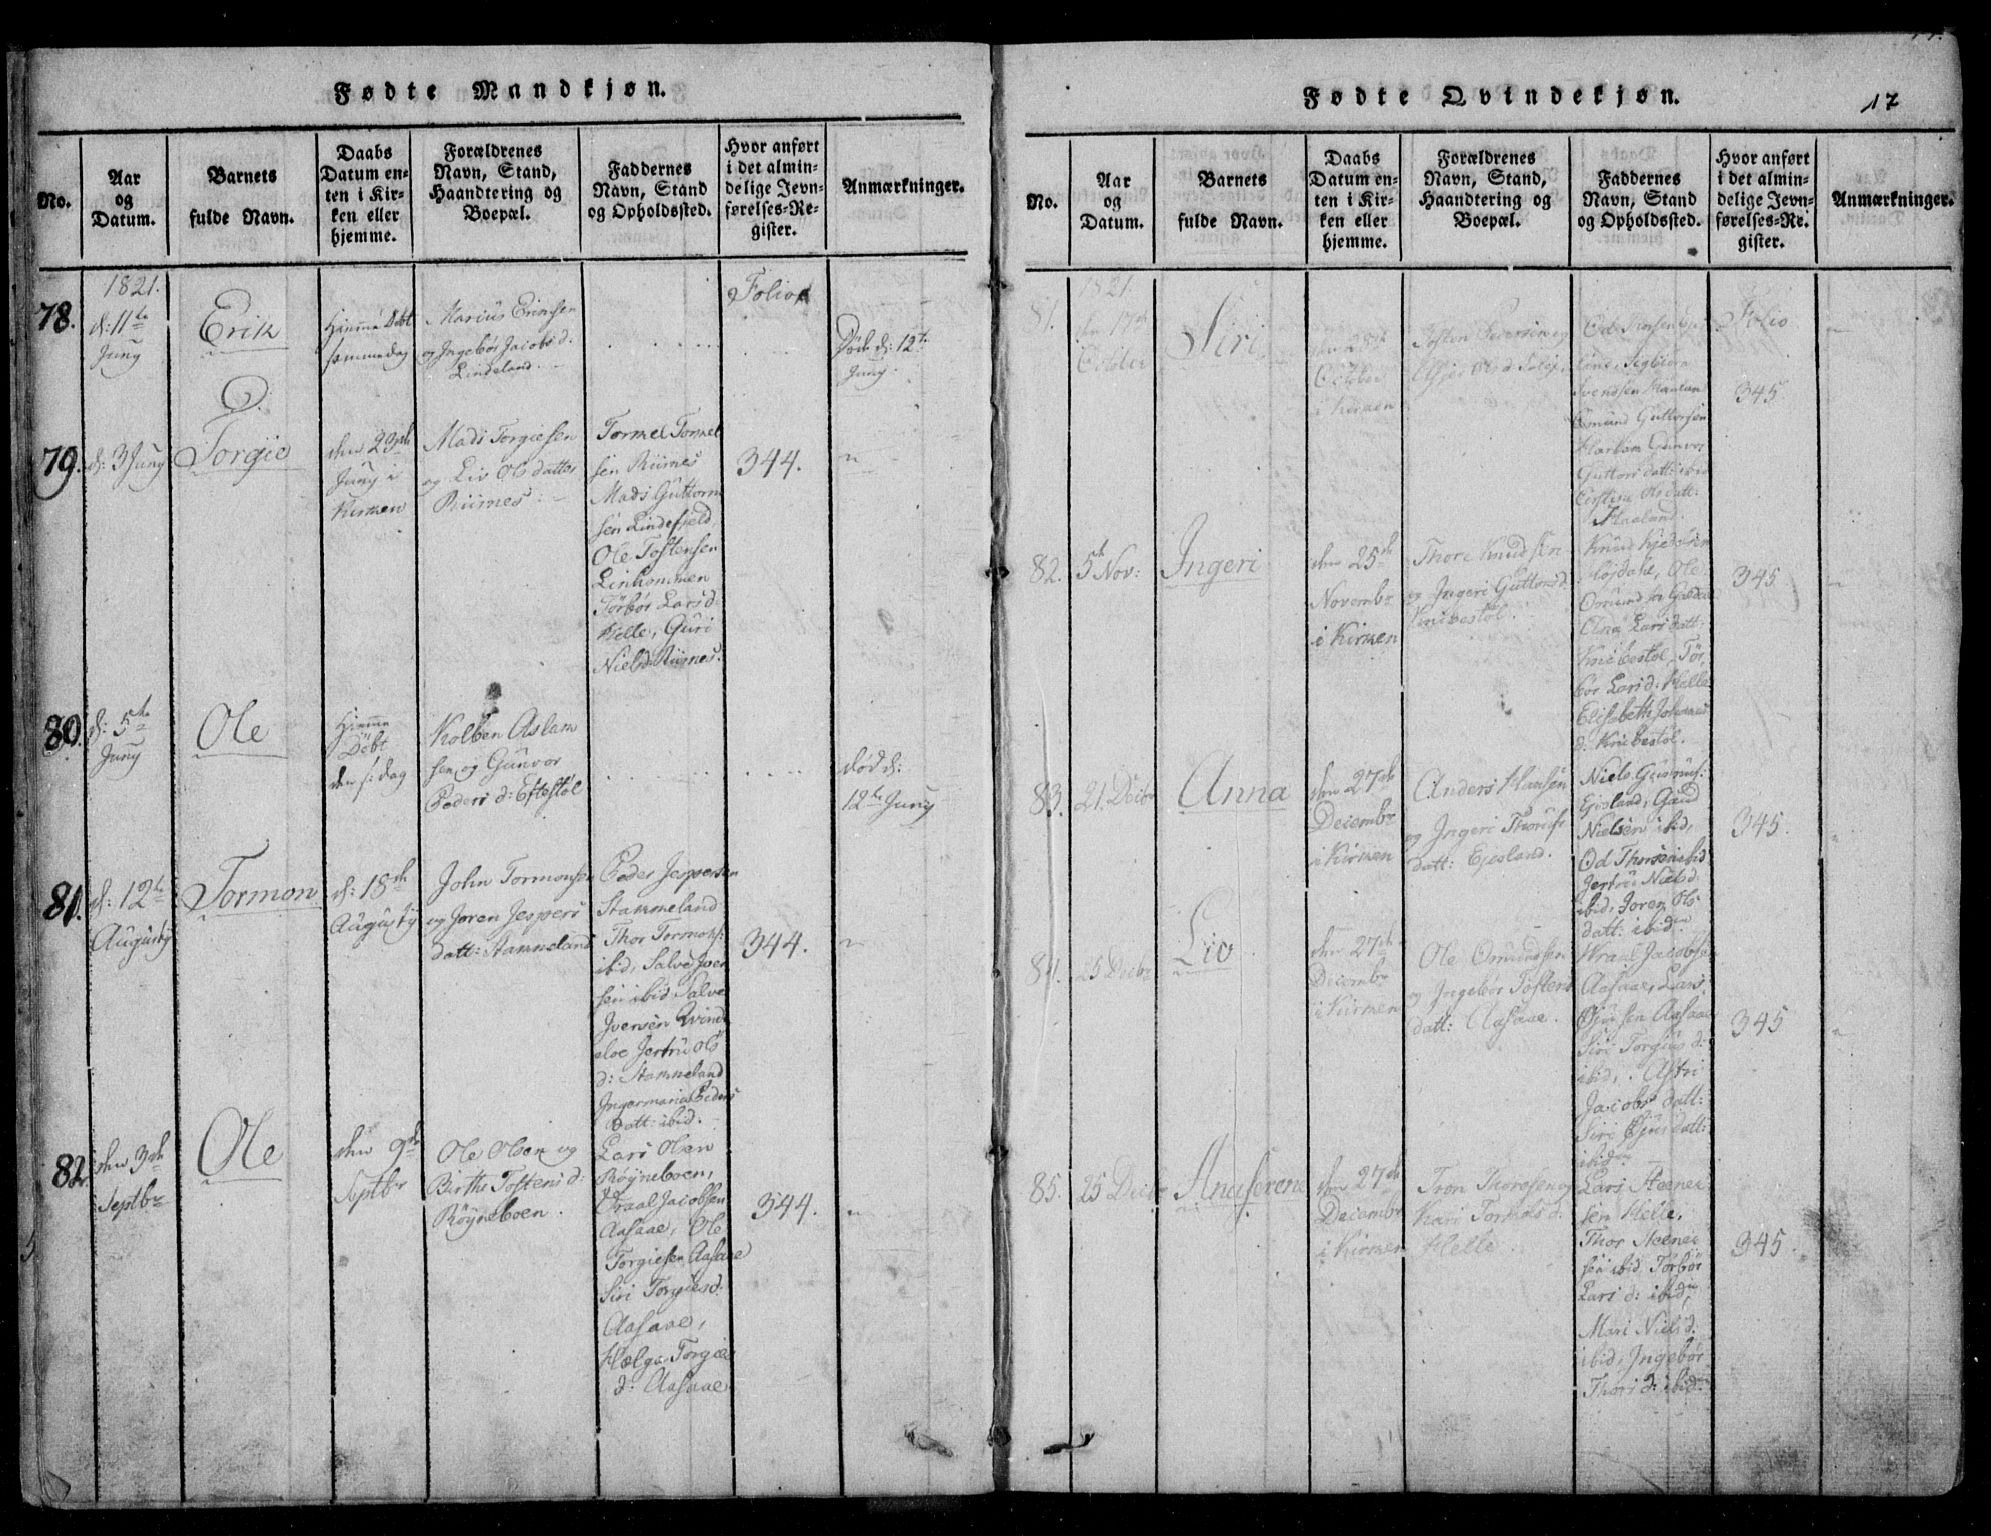 Fødte Mandkjøn.
No.
Aar
og
Datum.
Barnets
fulde Navn.
Daabs
Datum en-
ten i Kir-
ken eller
hjemme.
Forældrenes
Navn, Stand,
Haandtering og
Boepæl.
Faddernes
Navn, Stand
og Opholdssted.
Hvor anført
i det almin-
delige Jevn-
førelses-Re-
gister.
Anmærkninger.
78.
1821.
d: 11te
Juny
Erik
Hiemme Døbt
samme dag
Marius Erichsen
og Ingebør Jacobs d.
Lindeland.
Folio
Døde d: 12te
Juny.
79.
d: 3 Juny
Torgie
den 23de
Juny i
Kirken
Mads Torgiesen
og Liv Ols datter
Riimes.
Tormel Tormel
sen Riimes
Mads Guttorm
sen Lindefjeld,
Ole Tostensen
Linhommen
Törbör Lars d.
Helle, Guri
Niels d: Riimes.
344.
"
80.
d: 5te
Juny
Ole
Hiemme
Döbt
den s: dag
Kolben Aslam
sen og Gunvor
Peders d: Eftestöl
död d:
12te Juny
81.
d: 12te
Augusty
Tormon
d: 18de
Augusty
John Tormonsen
og Joren Jespers
datt: Stammeland
Peder Jespersen
Stammeland
Thor Tormons:
ibid, Salve Iver
sen ibid Salve
Iversen Qvind
sloe Jertru Ols
d: Stammeland
Ingermaria Peders
datt: ibid.
344.
"
82.
den 3de
Septbr
Ole
den 9de
Septbr
Ole Olsen og
Birthe Tostens d:
Röyneboen.
Lars Olsen
Röyneboen,
Vraal Jacobsen
Aasaae, Ole
Torgiesen Aasaae
Siri Torgies d:
Aasaae,
Hælga Torgies
d: Aasaae
344.
"
Fødte Qvindekjøn.
17
No.
Aar
og
Datum.
Barnets
fulde Navn.
Daabs
Datum en-
ten i Kir-
ken eller
hjemme.
Forældrenes
Navn, Stand,
Haandtering og
Boepæl.
Faddernes
Navn, Stand
og Opholdssted.
Hvor anført
i det almin-
delige Jevn-
førelses-Re-
gister.
Anmærkninger.
81.
1821.
den 17de
October
Siri
den 28de
October
i Kirken
Tosten Pedersen og
Ols d
Od Thorsen
Svendsen
Guttorsen
Gunvor
Guttors datt: ibid
Ols datt:
Haaland.
Folio
345
"
82.
5te Nov:
Ingeri
den 25de
Novembr
i Kirken
Thore Knudsen
og Ingeri Guttorms d
Knibestöl.
Knud
Ole
Omunds
Ana Lars datt:
Knibestöl, Tör
bör Lars d: Helle
Elisabeth Johannes
d: Knibestöl.
345
"
83.
21. Decbr
Anna
den 27de
Decembr
i Kirken
Anders Hansen
og Ingeri Thorus
datt: Ejesland.
Niels
Ejesland, Gaud
Nielsen ibid,
Od Thorsen ibid
Jertru Niels d:
ibid, Joren Ols
datt: ibidn
345.
"
84.
25 Decbr
Liv
den 27de
Decembr
i Kirken
Ole Omundsen
og Ingebör Tostens
datt: Aasaae.
Wraal Jacobsen
Aasaae, Lars
Gjusen Aasaae
Siri Torgius d:
ibid, Astri
Jacobs datt:
Siri Gjus datt:
ibidn
345
"
85.
25 Decbr
Anaserene
den 27de
Decembr
i Kirken
Tron Thoresen og
Kari Tormods d:
Helle
Lars Steener
sen Helle,
Thor Steener
sen ibid, Törbör
Lars d: ibidn,
Mari Niels d:
ibid, Ingebör
Thors d: ibidn
345.